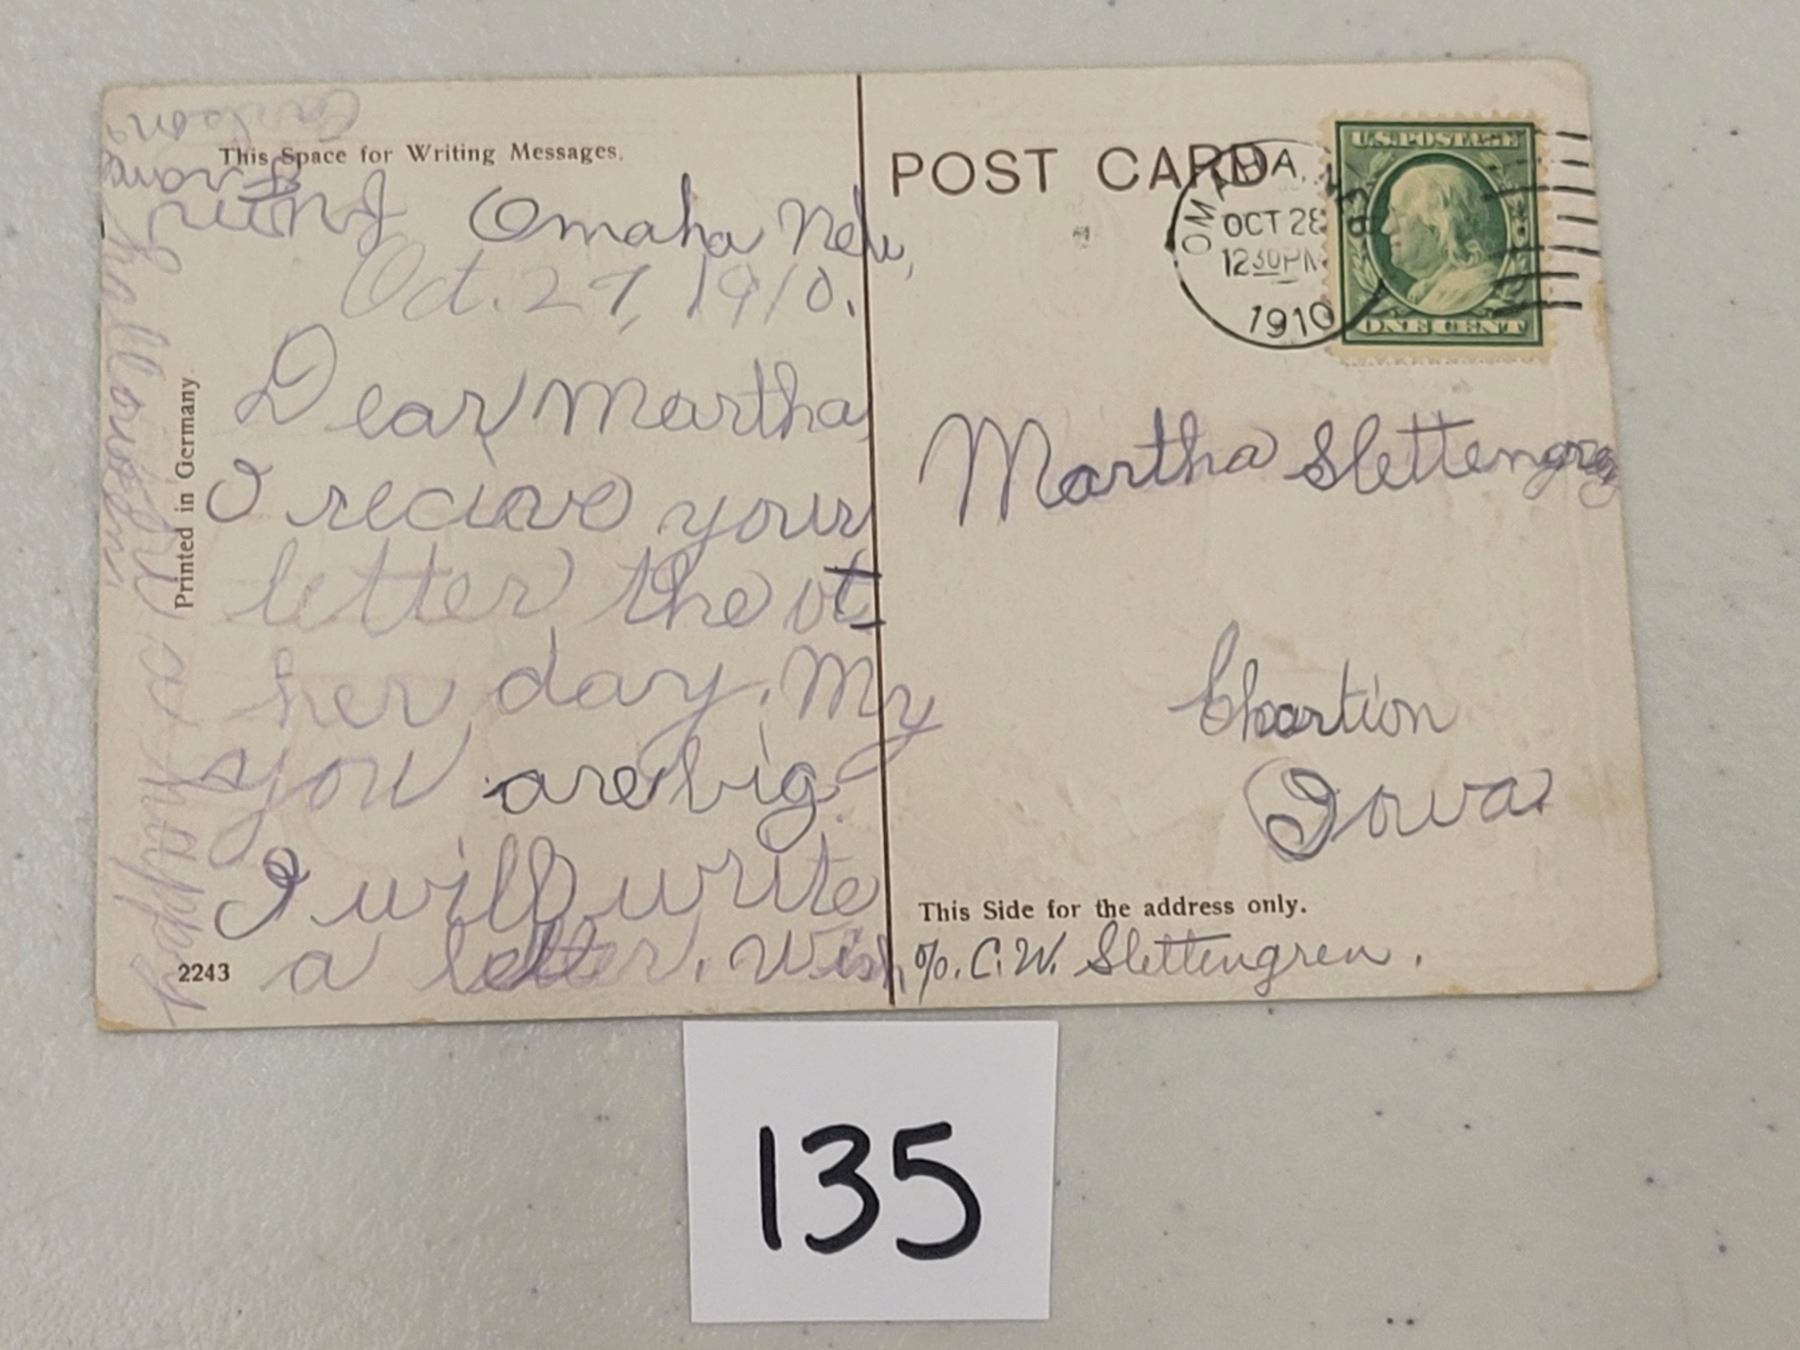 This Space for Writing Messages.
Omaha Neb,
Oct. 27, 1910.
Dear Martha,
I recieve your
letter the ot
her day. My
you are big.
I will write
a letter. Wish
you a happy
halloween
From
Carlson
Printed in Germany
2243
POST CARD
OMAHA, NEBR
OCT 28
12 30 PM
1910
U.S. POSTAGE
ONE CENT
Martha Slettengren
Chartion
Iowa.
This Side for the address only.
c/o. C. W. Slettengren.
135